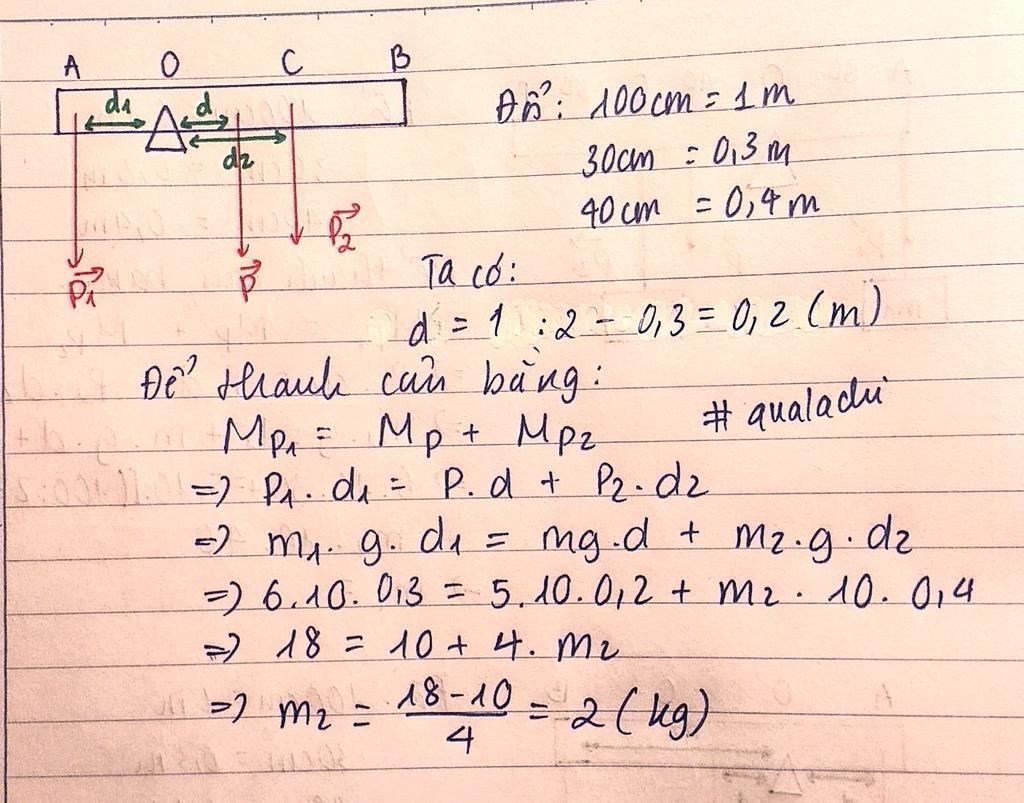 A O C B
d1 d
d2
P1 P P2
Đổi: 100cm = 1m
30cm = 0,3m
40cm = 0,4m
Ta có:
d = 1 : 2 - 0,3 = 0,2 (m)
Để thanh cân bằng:
# qualachi
MP1 = MP + MP2
=> P1. d1 = P. d + P2. d2
=> m1. g. d1 = mg.d + m2.g.d2
=> 6.10. 0,3 = 5.10.0,2 + m2. 10. 0,4
=> 18 = 10 + 4. m2
=> m2 = (18-10)/4 = 2 (kg)